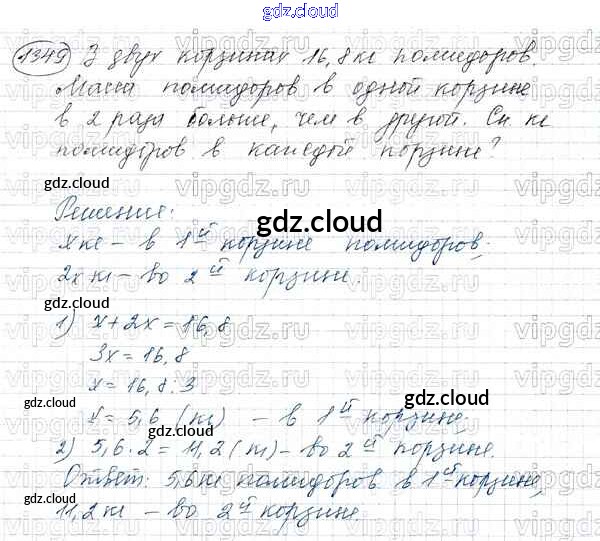 gdz.cloud
1349 В двух корзинах 16,8 кг помидоров.
Масса помидоров в одной корзине
в 2 раза больше, чем в другой. Ск. кг
помидоров в каждой корзине?
gdz.cloud
Решение:
gdz.cloud
x кг – в 1й корзине помидоров;
2x кг – во 2й корзине.
gdz.cloud
1) x + 2x = 16,8
3x = 16,8
x = 16,8 : 3
gdz.cloud gdz.cloud
x = 5,6 (кг) – в 1й корзине;
2) 5,6 · 2 = 11,2 (кг) – во 2й корзине.
gdz.cloud
Ответ: 5,6 кг помидоров в 1й корзине,
gdz.cloud
11,2 кг – во 2й корзине.